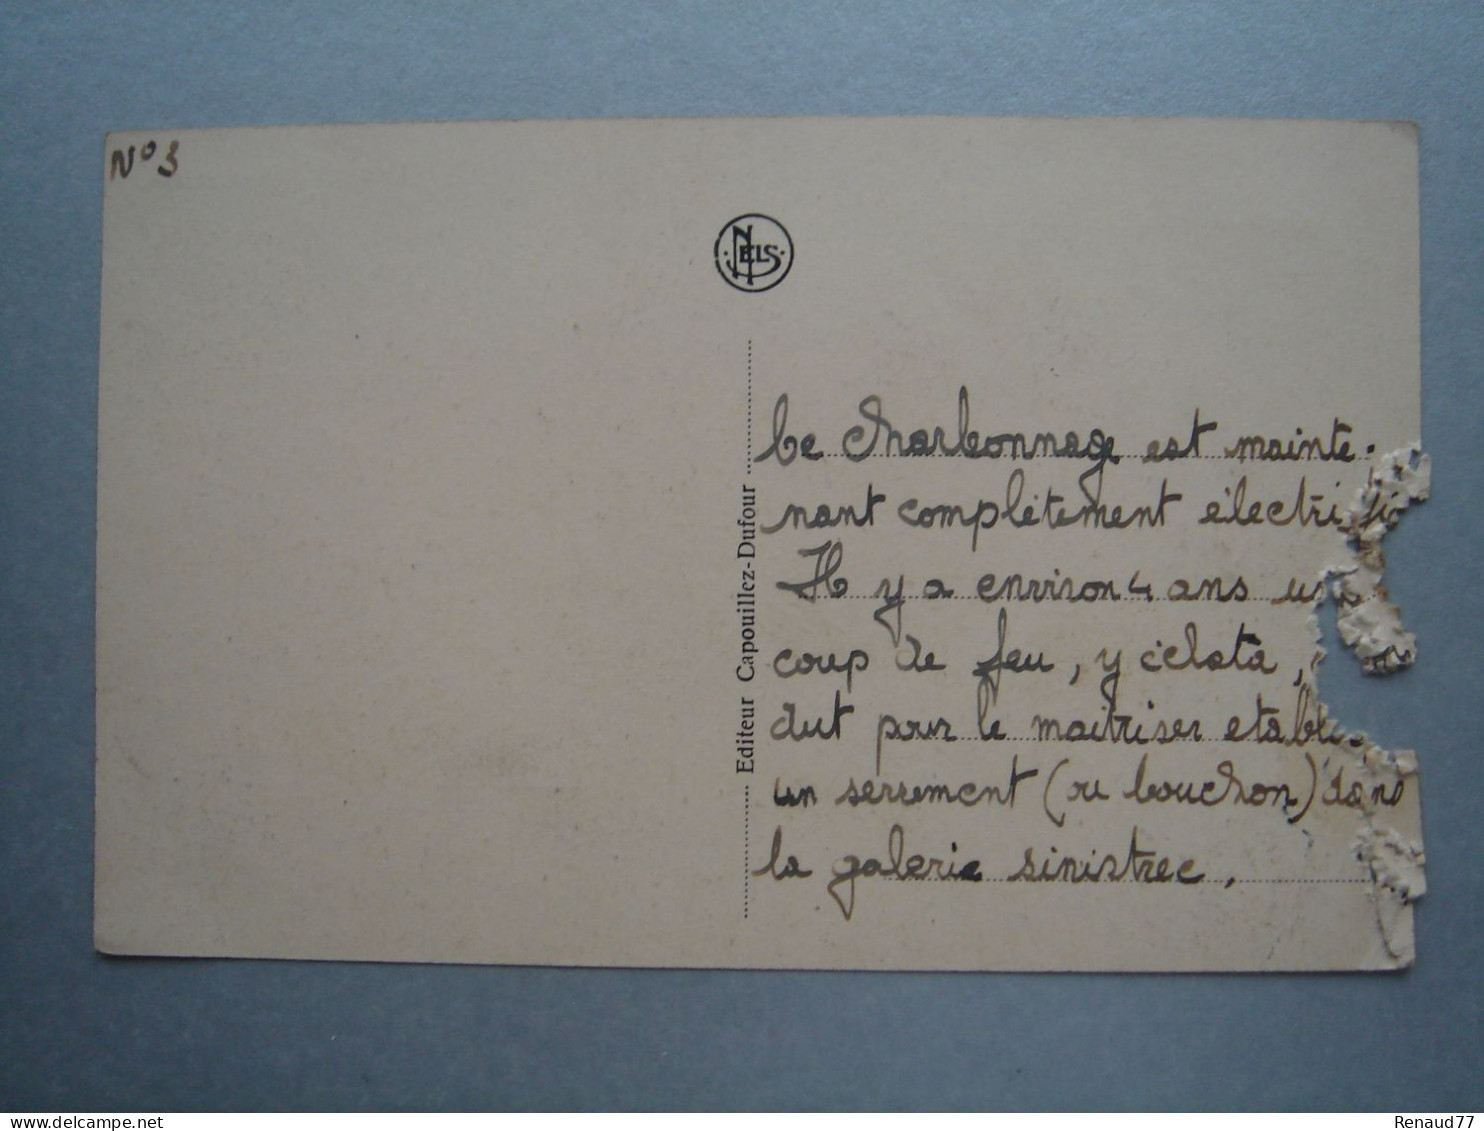 N° 3
NELS
Editeur Capouillez-Dufour
Ce charbonnage est mainte-
nant complètement électrifi
Il y a environ 4 ans un
coup de feu, y éclata,
dut pour le maitriser etabli
un serrement (ou bouchon) dans
la galerie sinistree.
Renaud77